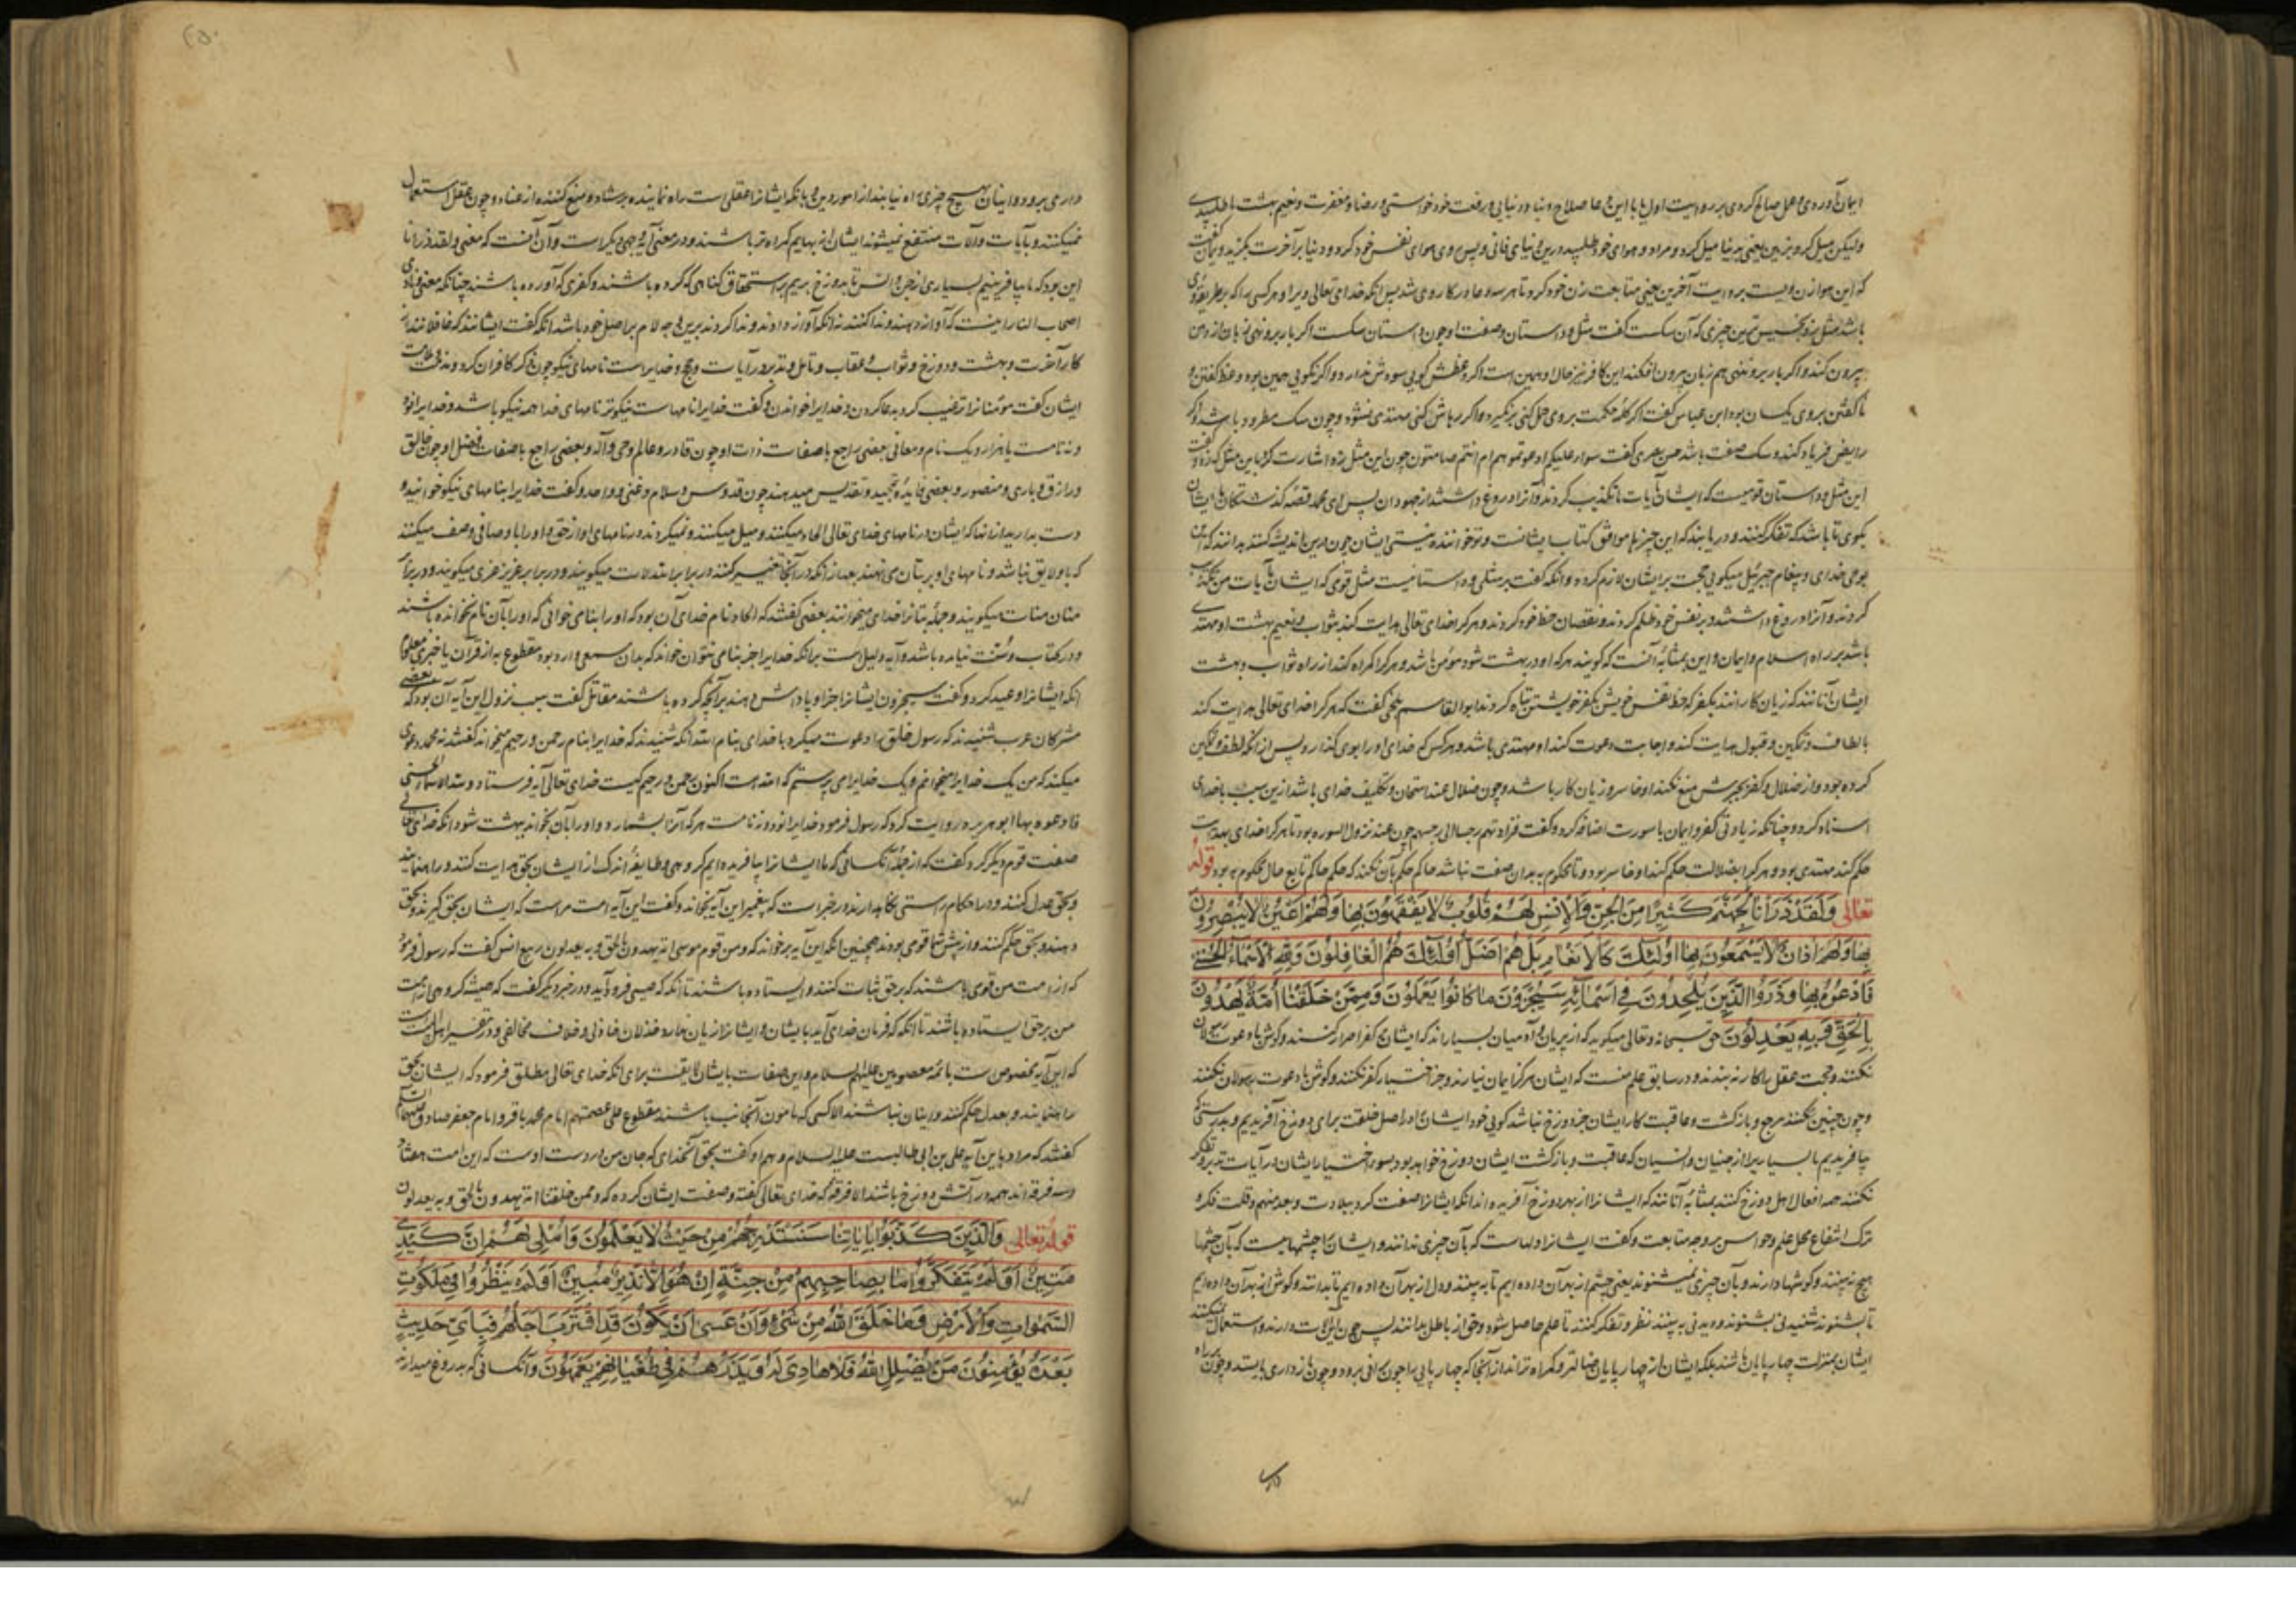 ایمان آورده‌ی و عمل صالح کرده‌ی بر روایت اول یا با این دعا صلاح دنیا و دنیایی و رفعت خود خواستی و رضا و مغفرت و نعیم بهشت را طلبیدی
ولیکن میل کرد بزمین یعنی بدنیا میل کرد و مراد و هوای خود طلبید درین دنیای فانی و پس روی هوای نفس خود کرد و دنیا بر آخرت بگزید
که این هوا زن ویست بروایت آخرین یعنی متابعت زن خود کرد تا هر سه دعا در کار وی شد پس آنکه خدای تعالی ویرا و هر کسی را که بر طریقه وی
باشد مثل بزد بخسیس ترین چیزی که آن سکست گفت مثل و داستان و صفت او چون داستان سکست اگر بار برو نهی زبان از دهن
بیرون کند و اگر بار برو ننهی هم زبان بیرون افکند این کافر نیز حال او همین است اگر وعظش گویی سودش ندارد و اگر نگویی همین بود وعظ گفتن و
ناگفتن بروی یکسان بود ابن عباس گفت اگر کلمه حکمت بروی حمل کنی برنگیرد و اگر رهاش کنی مهتدی نشود و چون سک مطرود باشد
این مثل و داستان قومیست که ایشان آیات ما تکذیب کردند و آنرا دروغ داشتند از جهودان پس ای محمد قصه گذشتگان با ایشان
بگوی تا باشد که تفکر کنند و دریابند که این چیزها موافق کتاب ایشانست و تو خواننده نیستی ایشان چون درین اندیشه کنند بدانند که
بوحی خدای و پیغام جبرئیل میگویی حجت بر ایشان لازم کرد و آنکه گفت بد مثلی و داستانیست مثل قومی که ایشان آیات من تکذیب
کردند و آنرا دروغ داشتند و بر نفس خود ظلم کردند و نقصان حظ خود کردند و هر کرا خدای تعالی هدایت کند بثواب و نعیم بهشت او مهتدی
باشد بر راه اسلام و ایمان و این بمثابه آنست که گویند هر که او در بهشت شود مومن باشد و هر کرا گمراه کند از راه ثواب و بهشت
ایشان آنانند که زیان کارانند بکفر که حظ نفس خویش بکفر خویشتن تباه کردند ابوالقاسم بلخی گفت که هر کرا خدای تعالی هدایت کند
بالطاف و تمکین و قبول هدایت کند و اجابت دعوت کند او مهتدی باشد و هر کس که خدای او را بوی گذارد پس از آنکه لطف و تمکین
کرده بود و از ضلال و کفر بجبرش منع نکند او خاسر و زیان کار باشد و چون ضلال عند امتحان و تکلیف خدای باشد ازین سبب با خدای
اسناد کرد و چنانکه زیادتی کفر و ایمان با سورت اضافه کرد و گفت فزادتهم رجسا الی رجسهم چون عند نزول السوره بود تا هر کرا خدای بهدایت
حکم کند مهتدی بود و هر کرا بضلالت حکم کند او خاسر بود و تا محکوم به بدان صفت نباشد حاکم حکم بآن نکند که حکم حاکم تابع حال محکوم به بود قوله
تعالی وَلَقَدْ ذَرَأْنَا لِجَهَنَّمَ كَثِيرًا مِنَ الْجِنِّ وَالْإِنْسِ لَهُمْ قُلُوبٌ لَا يَفْقَهُونَ بِهَا وَلَهُمْ أَعْيُنٌ لَا يُبْصِرُونَ
بِهَا وَلَهُمْ آذَانٌ لَا يَسْمَعُونَ بِهَا أُولَئِكَ كَالْأَنْعَامِ بَلْ هُمْ أَضَلُّ أُولَئِكَ هُمُ الْغَافِلُونَ وَلِلَّهِ الْأَسْمَاءُ الْحُسْنَى
فَادْعُوهُ بِهَا وَذَرُوا الَّذِينَ يُلْحِدُونَ فِي أَسْمَائِهِ سَيُجْزَوْنَ مَا كَانُوا يَعْمَلُونَ وَمِمَّنْ خَلَقْنَا أُمَّةٌ يَهْدُونَ
بِالْحَقِّ وَبِهِ يَعْدِلُونَ حق سبحانه و تعالی میگوید که از پریان و آدمیان بسیاراند که ایشان بکفر اصرار کنند و گوش با دعوت
نکنند و حجت عقل را کار نه بندند و در سابق علم منست که ایشان هرگز ایمان نیارند و جز اختیار کفر نکنند و گوش با دعوت رسولان نکنند
و چون چنین نکنند مرجع و بازگشت و عاقبت کار ایشان جز دوزخ نباشد گویی خود ایشان را در اصل خلقت برای دوزخ آفریدیم
بیافریدیم ما بسیاری را از جنیان و انسیان که عاقبت و بازگشت ایشان دوزخ خواهد بود بسوء اختیار ایشان در آیات تدبر و تفکر
نکنند همه افعال اهل دوزخ کنند بمثابه آنانند که ایشانرا از بهر دوزخ آفریده اند آنکه ایشانرا صفت کرد ببلادت و بعد فهم و قلت فکر و
ترک انتفاع محل علم و حواس بر وجه متابعت و گفت ایشانرا دلهاست که بآن چیزی ندانند و ایشان را چشمهاست که بآن چشمها
هیچ نه بینند و گوشها دارند و بآن چیزی نمیشنوند یعنی چشم از بهر آن داده ایم تا به بینند و دل از بهر آن داده ایم تا بدانند و گوش از بهر آن داده ایم
تا بشنوند شنیدنی بشنوند و دیدنی به بینند نظر و تفکر کنند تا علم حاصل شود و حق از باطل بدانند پس چون این آلات دارند و استعمال نمیکنند
ایشان بمنزلت چهارپایان باشند بلکه ایشان از چهارپایان ضالتر و گمراه تراند از آنجا که چهارپایی را چون برانی برود و چون باز داری بایستد و چون راه
داری برود و اینان بهیچ چیزی راه نیابند از امور دین با آنکه ایشانرا عقلی است راه نماینده برشاد و منع کننده از عناد و چون عقل استعمال
نمیکنند و بآیات و آلات منتفع نمیشوند ایشان از بهایم گمراه تر باشند و در معنی آیه وجهی دیگر است و آن آنست که معنی ولقد ذرأنا
این بود که ما بیافرینیم بسیاری از جن و انس تا بدوزخ بریم بر استحقاق گناهی که کرده باشند و کفری که آورده باشند چنانکه معنی ونادی
اصحاب النار اینست که آواز دهند و ندا کنند نه آنکه آواز دادند و ندا کردند برین وجه لام بر اصل خود باشد آنکه گفت ایشانند که غافلانند از
کار آخرت و بهشت و دوزخ و ثواب و عقاب و تامل و تدبر در آیات و حجج و خدایراست نامهای نیکو چون ذکر کافران کرد و مذمت
ایشان گفت مومنانرا ترغیب کرد بدعا کردن و خدایرا خواندن و گفت خدایرا نامهاست نیکوتر نامهای خدا همه نیکو باشد و خدایرا نود
و نه نامست یا هزار و یک نام و معانی بعضی راجع با صفات ذات او چون قادر و عالم و حی و آله و بعضی راجع با صفات فعل او چون خالق
و رازق و باری و منصور و بعضی فایده و تمجید و تقدیس میدهند چون قدوس و سلام و غنی و واحد و گفت خدایرا بنامهای نیکو خوانید و
دست بدارید از آنها که ایشان در نامهای خدای تعالی الحاد میکنند و میل میکنند و نمیگروند در نامهای او از حق و او را با وصافی وصف میکنند
که باو لایق نباشد و نامهای او بر بتان می نهند بعد از آنکه در آنجا تغییر کنند در برابر الله لات میگویند و در برابر عزیز عزی میگویند و در برابر
منان منات میگویند و جمله بتانرا خدای میخوانند بعضی گفتند که الحاد نام خدای آن بود که او را بنامی خوانی که او را بآن نام نخوانده باشند
و در کتاب و سنت نیامده باشد و آیه دلیل است برانکه خدایرا جز بنامی نتوان خواند که بدان سمعی وارد بود مقطوع به از قرآن یا خبری معلوم
آنکه ایشانرا وعید کرد و گفت سیجزون ایشانرا جزا و پاداش دهند بر آنچه کرده باشند مقاتل گفت سبب نزول این آیه آن بود که بعضی
مشرکان عرب شنیدند که رسول خلق را دعوت میکرد با خدای بنام الله آنکه شنیدند که خدایرا بنام رحمن و رحیم میخواند گفتند نه محمد دعوی
میکند که من یک خدایرا میخوانم و یک خدایرا می پرستم که الله است اکنون رحمن و رحیم کیست خدای تعالی آیه فرستاد ولله الاسماء الحسنی
فادعوه بها ابوهریره روایت کرد که رسول فرمود خدایرا نود و نه نامست هر که آنرا بشمارد و او را بآن بخواند ببهشت شود آنکه خدای تعالی
صفت قوم دیگر کرد گفت که از جمله آنکسانی که ما ایشانرا بیافریده ایم گروهی و طایفه اندک از ایشان بحق هدایت کنند و راه نمایند
و بحق عدل کنند و در احکام راستی نگاهدارند در خبر است که پیغمبر این آیه بخواند و گفت این آیه امت مراست که ایشان بحق گیرند و بحق
دهند و بحق حکم کنند و از پیش شما قومی بودند همچنین آنکه این آیه بر خواند که ومن قوم موسی امة یهدون بالحق وبه یعدلون ربیع انس گفت که رسول فرمود
که از امت من قومی باشند که بر حق ثبات کنند و ایستاده باشند تا آنکه که عیسی فرود آید و در خبر دیگر گفت که همیشه گروهی از امت
من بر حق ایستاده باشند تا آنکه که فرمان خدای آید بایشان و ایشانرا زیان ندارد خذلان خاذلی و خلاف مخالفی و در تفسیر اهل البیت است
که این آیه مخصوص است بائمه معصومین علیهم السلام و این صفات بایشان لایقست برای آنکه خدای تعالی مطلق فرمود که ایشان بحق
راه نمایند و بعدل حکم کنند و اینان نباشند الا کسی که مامون الجانب باشند مقطوع علی عصمتهم امام محمد باقر و امام جعفر صادق علیهما السلام
گفتند که مراد باین آیه علی بن ابی طالبست علیه السلام و هم او گفت بحق آنخدای که جان من بدست اوست که این امت هفتاد
و سه فرقه اند همه در آتش دوزخ باشند الا فرقه که خدای تعالی گفته و صفت ایشان کرده که وممن خلقنا امة یهدون بالحق وبه یعدلون
قوله تعالی وَالَّذِينَ كَذَّبُوا بِآيَاتِنَا سَنَسْتَدْرِجُهُمْ مِنْ حَيْثُ لَا يَعْلَمُونَ وَأُمْلِي لَهُمْ إِنَّ كَيْدِي
مَتِينٌ أَوَلَمْ يَتَفَكَّرُوا مَا بِصَاحِبِهِمْ مِنْ جِنَّةٍ إِنْ هُوَ إِلَّا نَذِيرٌ مُبِينٌ أَوَلَمْ يَنْظُرُوا فِي مَلَكُوتِ
السَّمَوَاتِ وَالْأَرْضِ وَمَا خَلَقَ اللَّهُ مِنْ شَيْءٍ وَأَنْ عَسَى أَنْ يَكُونَ قَدِ اقْتَرَبَ أَجَلُهُمْ فَبِأَيِّ حَدِيثٍ
بَعْدَهُ يُؤْمِنُونَ مَنْ يُضْلِلِ اللَّهُ فَلَا هَادِيَ لَهُ وَيَذَرُهُمْ فِي طُغْيَانِهِمْ يَعْمَهُونَ وآنکسانی که بدروغ میدارند